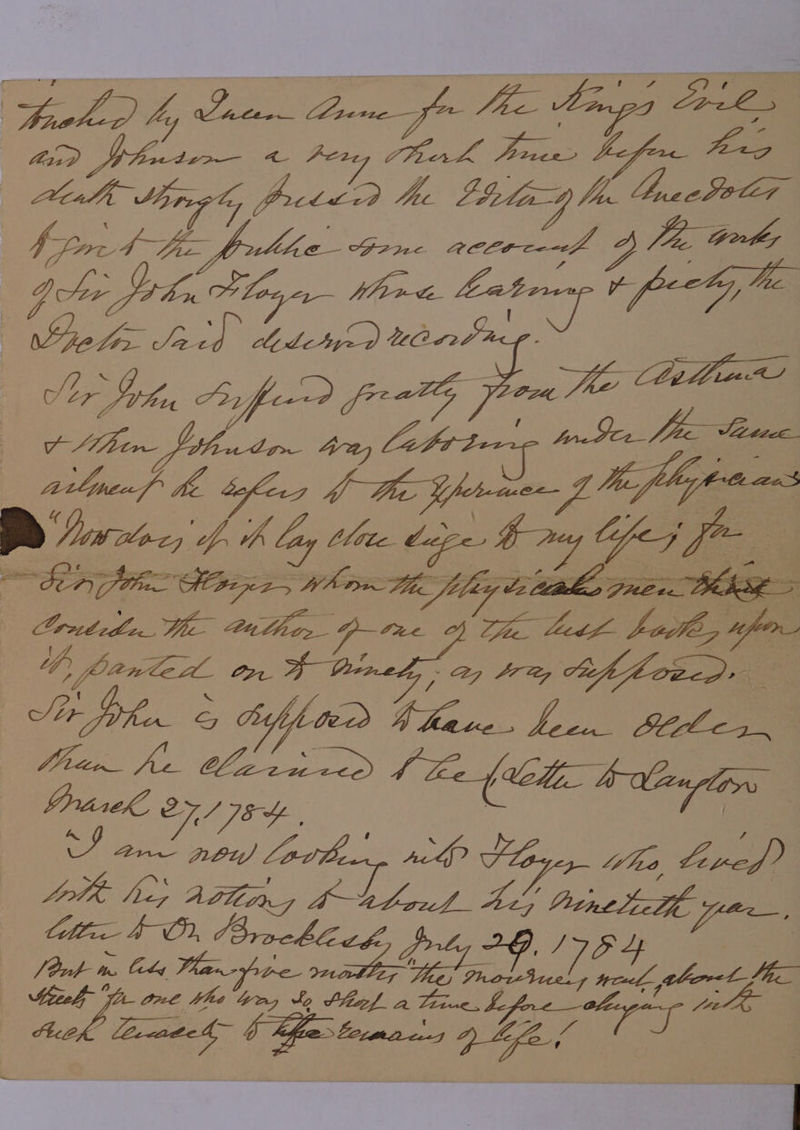 touched by Queen Anne for the King's Evil
and Johnson a very short time before his
death strongly pressed the Editor of the Anecdotes
to give to the public some account of the works
of Sir John Floyer whose learning & piety, the
Doctor said deserved recording.
Sir John suffered greatly from the Asthma
& when Johnson was laboring under the same
ailment he refers to the experience of the physician's
"Nor does it lay close siege to my life; for
Sir John Floyer whom the physical men
consider the author of one of the best books upon
it, panted on to ninety, as was supposed.
Sir John is supposed to have been older
than he claimed to be (Letter to Langton
March 27, 1784.
"I am now looking into Floyer who lived
with his notions to about his ninetieth year.
letter to Dr Brocklesby July 20. 1784
But in less than five months "the mourners went about the
streets" for one who was so short a time before clinging with
such tenacity to the remains of life!